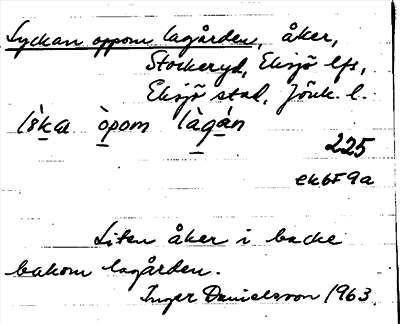 Lyckan oppom lagården, åker,
Stockeryd, Eksjö lfs,
Eksjö stad, Jönk. l.
òpom làgán
225
ek6F9a
Liten åker i backe
bakom lagården.
Inger Danielsson 1963.